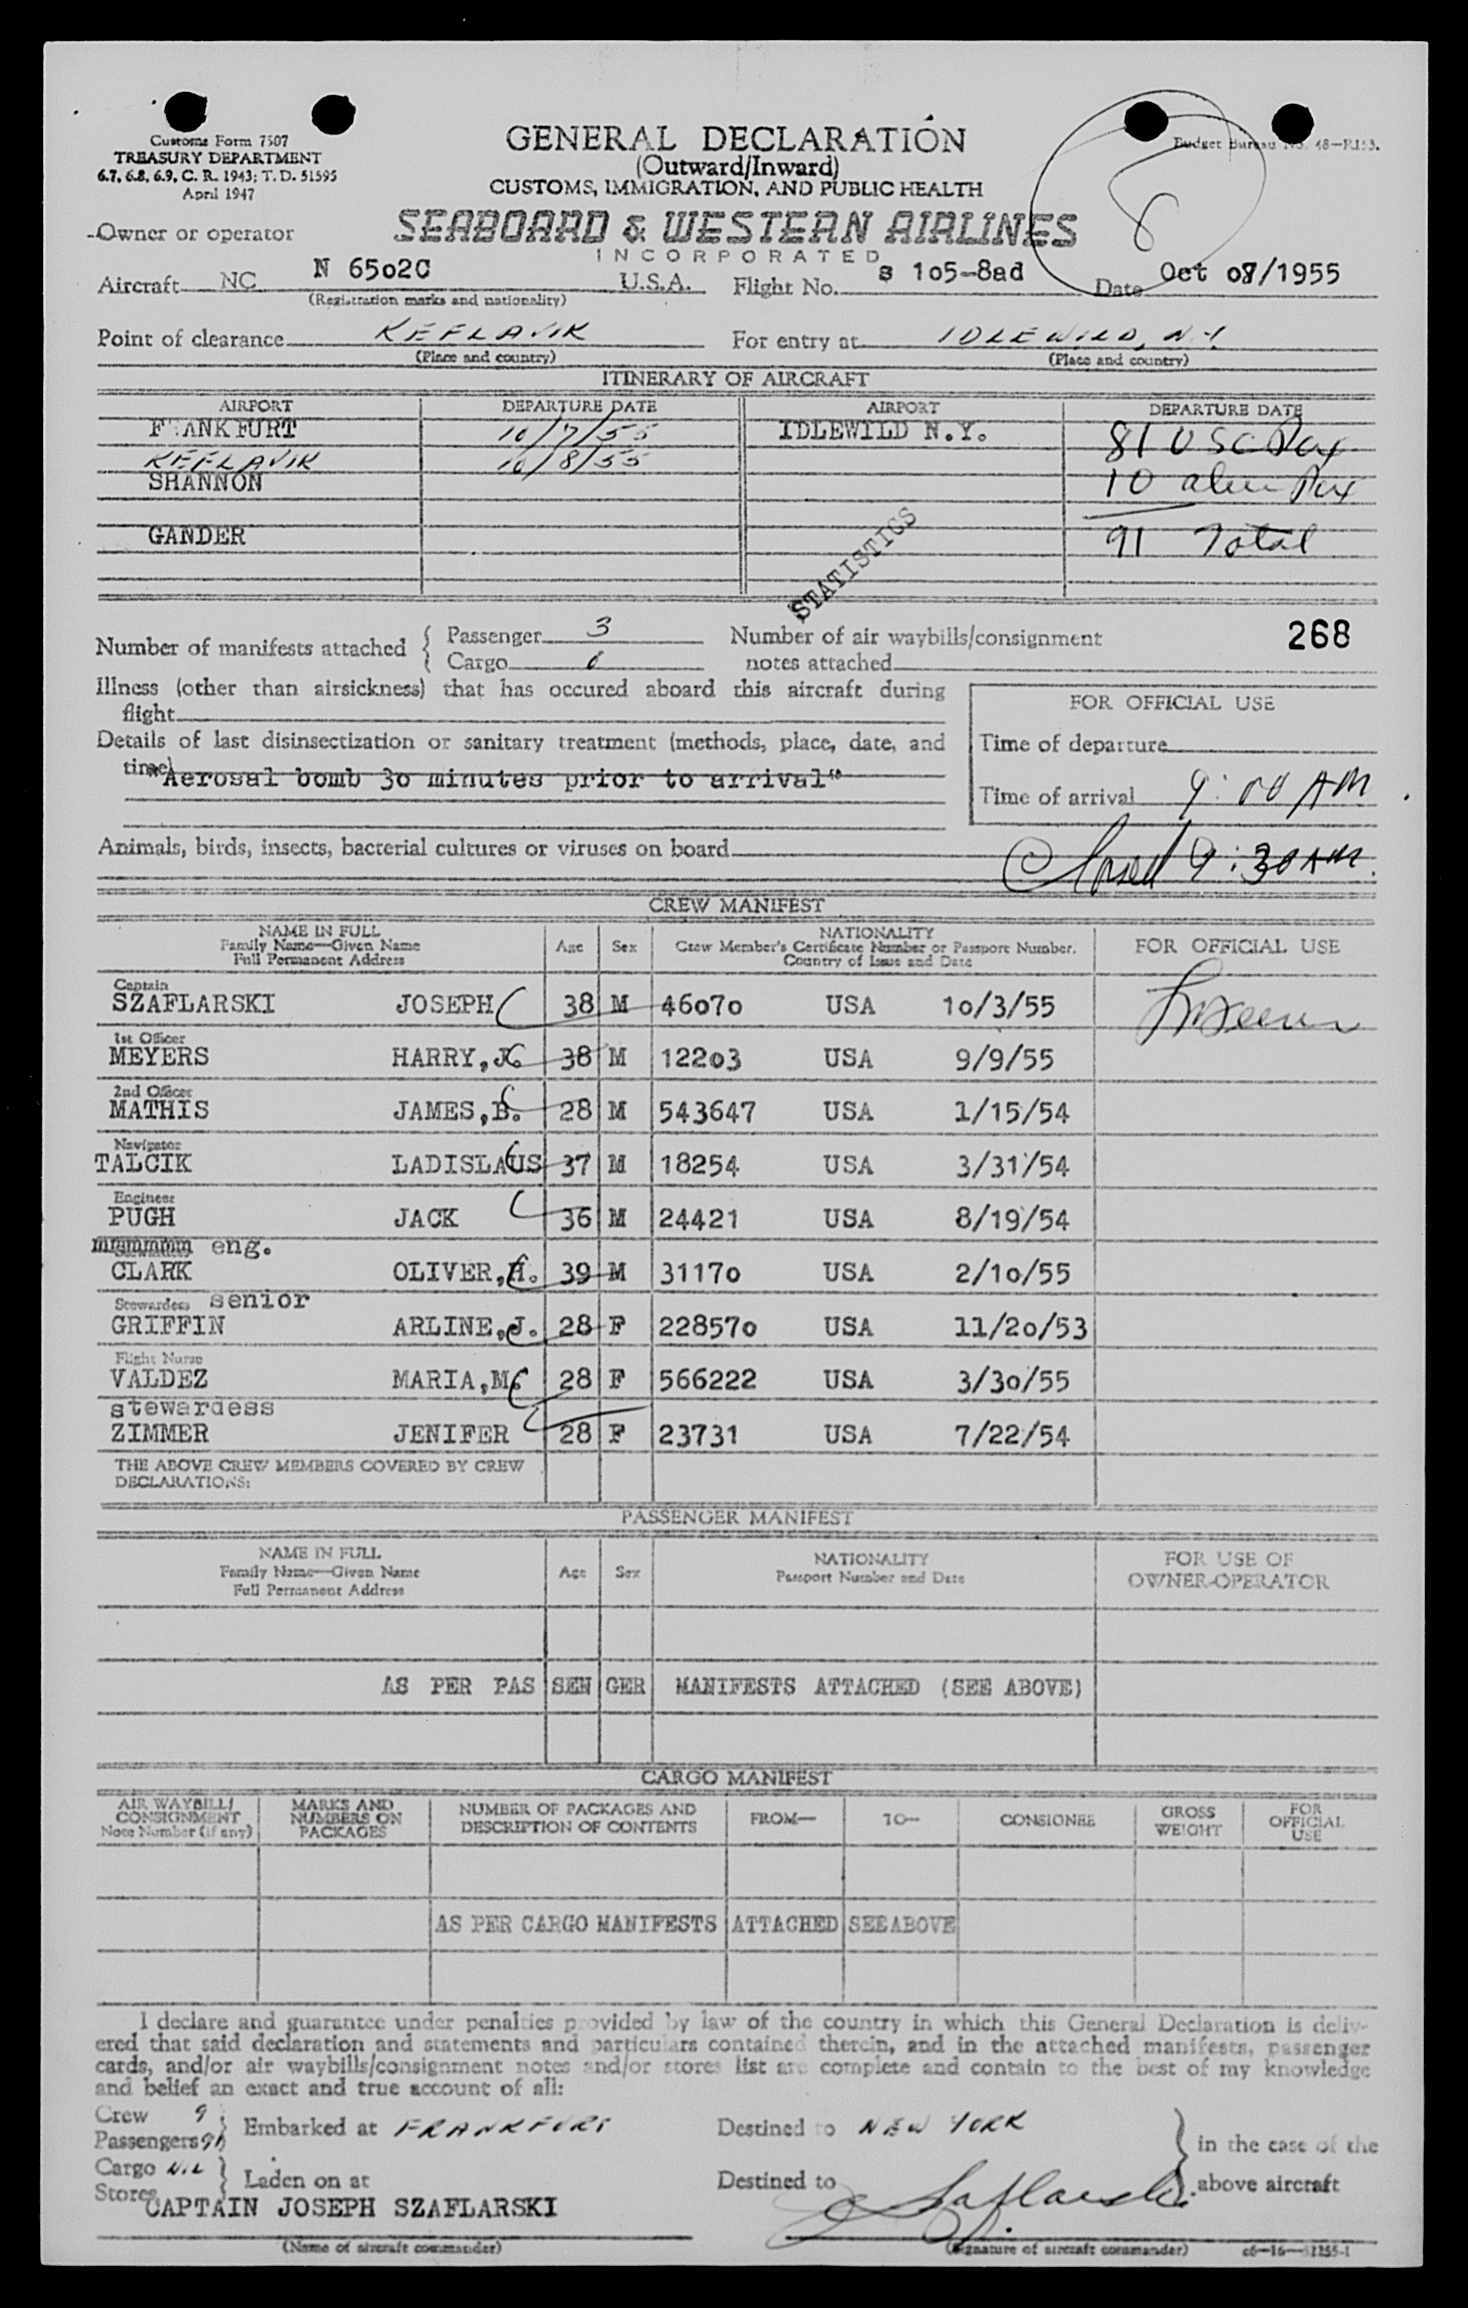 Customs Form 7507
TREASURY DEPARTMENT
6.7, 6.8, 6.9, C. R. 1943; T. D. 51595
April 1947
GENERAL DECLARATION
(Outward/Inward)
CUSTOMS, IMMIGRATION, AND PUBLIC HEALTH
Budget Bureau No. 48—R153.
8
Owner or operator SEABOARD & WESTERN AIRLINES
INCORPORATED
Aircraft NC N 6502C U.S.A. Flight No. s 105-8ad Date Oct 08/1955
(Registration marks and nationality)
Point of clearance KEFLAVIK For entry at IDLEWILD, N.Y.
(Place and country) (Place and country)
ITINERARY OF AIRCRAFT
AIRPORT DEPARTURE DATE AIRPORT DEPARTURE DATE
FRANKFURT 10/7/55 IDLEWILD N.Y. 81 USC Pax
KEFLAVIK 10/8/55
SHANNON 10 alien Pax
GANDER 91 Total
STATISTICS
Number of manifests attached { Passenger 3 Number of air waybills/consignment 268
Cargo 0 notes attached
Illness (other than airsickness) that has occured aboard this aircraft during
flight
FOR OFFICIAL USE
Details of last disinsectization or sanitary treatment (methods, place, date, and
time) "Aerosal bomb 30 minutes prior to arrival"
Time of departure
Time of arrival 9:00 AM
Animals, birds, insects, bacterial cultures or viruses on board
Closed 9:30 AM.
CREW MANIFEST
NAME IN FULL
Family Name—Given Name
Full Permanent Address
Age Sex
NATIONALITY
Crew Member's Certificate Number or Passport Number.
Country of Issue and Date
FOR OFFICIAL USE
Captain
SZAFLARSKI JOSEPH 38 M 46070 USA 10/3/55
1st Officer
MEYERS HARRY,J. 38 M 12203 USA 9/9/55
2nd Officer
MATHIS JAMES,B. 28 M 543647 USA 1/15/54
Navigator
TALCIK LADISLAUS 37 M 18254 USA 3/31/54
Engineer
PUGH JACK 36 M 24421 USA 8/19/54
eng.
CLARK OLIVER,H. 39 M 31170 USA 2/10/55
Stewardess senior
GRIFFIN ARLINE,J. 28 F 228570 USA 11/20/53
Flight Nurse
VALDEZ MARIA,M. 28 F 566222 USA 3/30/55
stewardess
ZIMMER JENIFER 28 F 23731 USA 7/22/54
THE ABOVE CREW MEMBERS COVERED BY CREW
DECLARATIONS:
PASSENGER MANIFEST
NAME IN FULL
Family Name—Given Name
Full Permanent Address
Age Sex
NATIONALITY
Passport Number and Date
FOR USE OF
OWNER-OPERATOR
AS PER PAS SEN GER MANIFESTS ATTACHED (SEE ABOVE)
CARGO MANIFEST
AIR WAYBILL/
CONSIGNMENT
Note Number (if any)
MARKS AND
NUMBERS ON
PACKAGES
NUMBER OF PACKAGES AND
DESCRIPTION OF CONTENTS
FROM—
TO—
CONSIGNEE
GROSS
WEIGHT
FOR
OFFICIAL
USE
AS PER CARGO MANIFESTS ATTACHED SEE ABOVE
I declare and guarantee under penalties provided by law of the country in which this General Declaration is deliv-
ered that said declaration and statements and particulars contained therein, and in the attached manifests, passenger
cards, and/or air waybills/consignment notes and/or stores list are complete and contain to the best of my knowledge
and belief an exact and true account of all:
Crew 9
Passengers 91 } Embarked at FRANKFURT Destined to NEW YORK
in the case of the
Cargo NIL
Stores } Laden on at Destined to above aircraft
CAPTAIN JOSEPH SZAFLARSKI J. Szaflarski
(Name of aircraft commander) (Signature of aircraft commander)